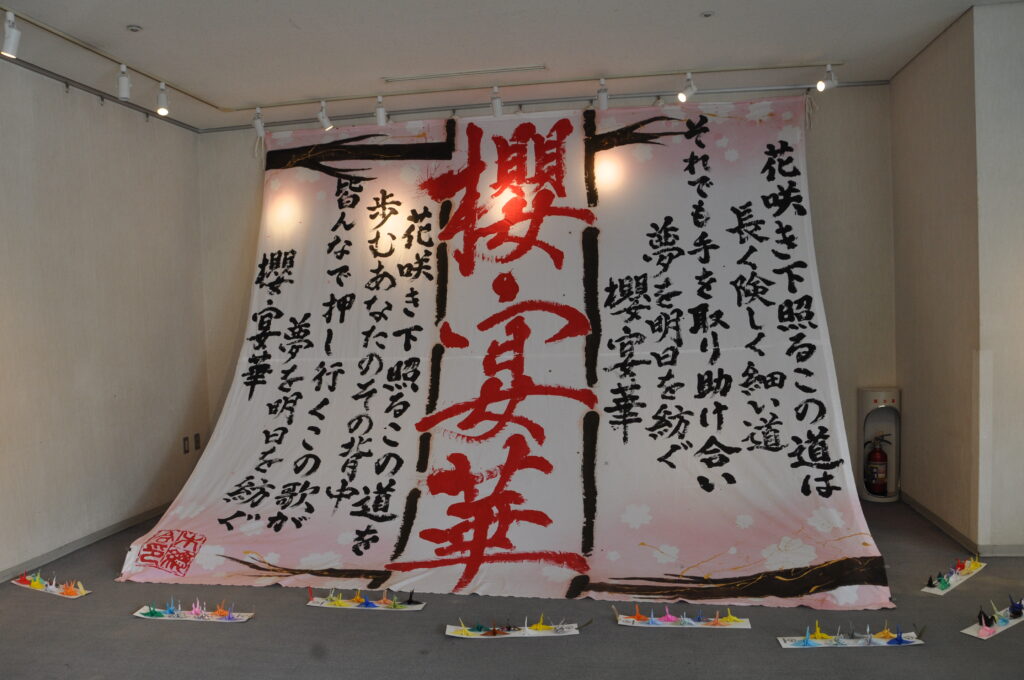 花咲き下照るこの道は
長く険しく細い道
それでも手を取り助け合い
夢を明日を紡ぐ
櫻宴華
櫻宴華
花咲き下照るこの道を
歩むあなたのその背中
皆んなで押し行くこの歌が
夢を明日を紡ぐ
櫻宴華